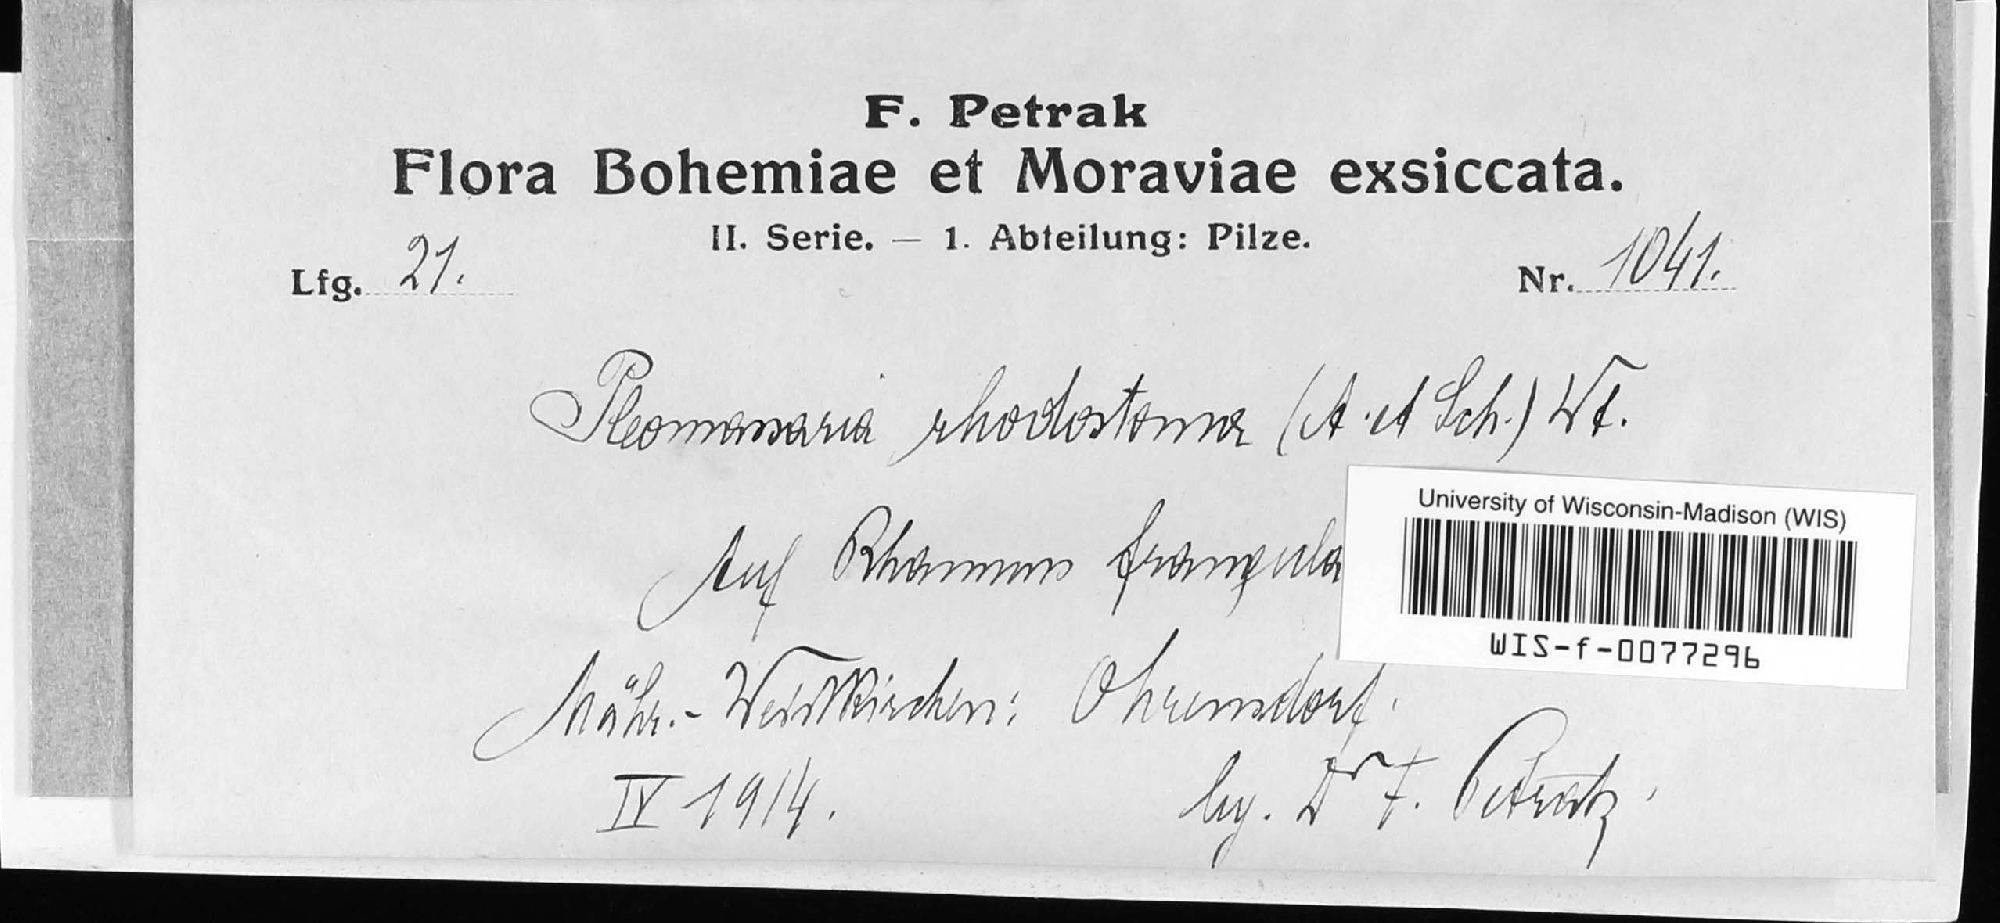 F. Petrak
Flora Bohemiae et Moraviae exsiccata.
II. Serie. — 1. Abteilung: Pilze.
Lfg. 21.
Nr. 1041.
Pleomassaria rhodostoma (A. et Sch.) Wt.
Auf Rhamnus frangula
Mähr.-Weisskirchen: Ohrensdorf.
IV 1914.
leg. Dr F. Petrak.
University of Wisconsin-Madison (WIS)
WIS-f-0077296